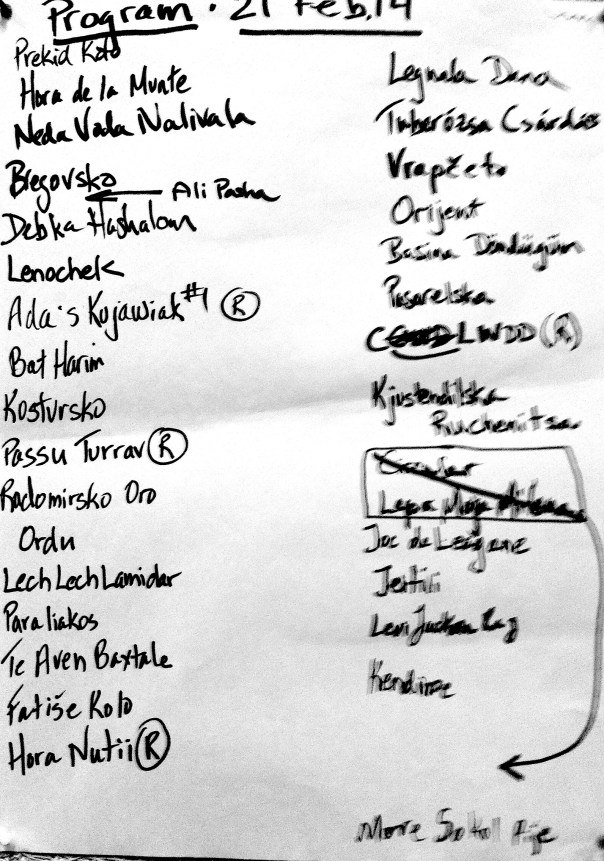 Program. 21 Feb, 14
Prekid Kolo
Hora de la Munte
Neda Voda Nalivala
Bregovsko
Ali Pasha
Debka Hashalom
Lenochek
Ada's Kujawiak #1 (R)
Bat Harim
Kostursko
Passu Turrav (R)
Radomirsko Oro
Ordu
Lech Lech Lamidbar
Paraliakos
Te Aven Baxtale
Fatiše Kolo
Hora Nutii (R)
Legnala Dana
Tuberózsa Csárdás
Vrapčeto
Orijent
Basina Döndügüm
Pusarelska
LWDD (R)
Kjustendilska
Ruchenitsa
Circular
Lepa Moja Milena
Joc de Leagane
Levi Jackson Rag
Kendime
More Sokol Pije